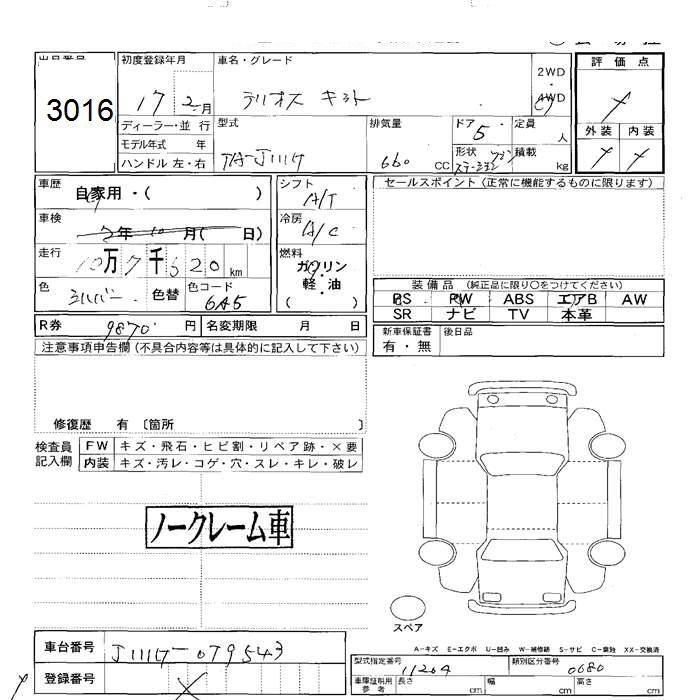 出品番号
3016
初度登録年月
17 2月
車名・グレード
テリオス キッド
2WD
・
4WD
評価点
外装 内装
ディーラー・並 行
モデル年式 年
ハンドル 左・右
型式
TA-J111G
排気量
660 CC
ドア
5
定員
人
形状
ステーション ワゴン
積載
kg
車歴
自家用・( )
車検
年 10月( 日)
走行
10万7千520km
色
シルバー
色替
色コード
6A5
シフト
A/T
冷房
A/C
燃料
ガソリン
軽・油
( )
セールスポイント(正常に機能するものに限ります)
装 備 品 (純正品に限り○をつけてください)
PS PW ABS エアB AW
SR ナビ TV 本革
R券 9870 円 名変期限 月 日
新車保証書
有・無
後日品
注意事項申告欄(不具合内容等は具体的に記入して下さい)
修復歴 有 〔箇所
検査員
記入欄
FW キズ・飛石・ヒビ割・リペア跡・×要
内装 キズ・汚レ・コゲ・穴・スレ・キレ・破レ
ノークレーム車
スペア
車台番号 J111G-079543
登録番号
A-キズ E-エクボ U-凹み W-補修跡 S-サビ C-腐蝕 XX-交換済
型式指定番号 11264
類別区分番号 0680
車庫証明用
参考
長さ cm 幅 cm 高さ cm